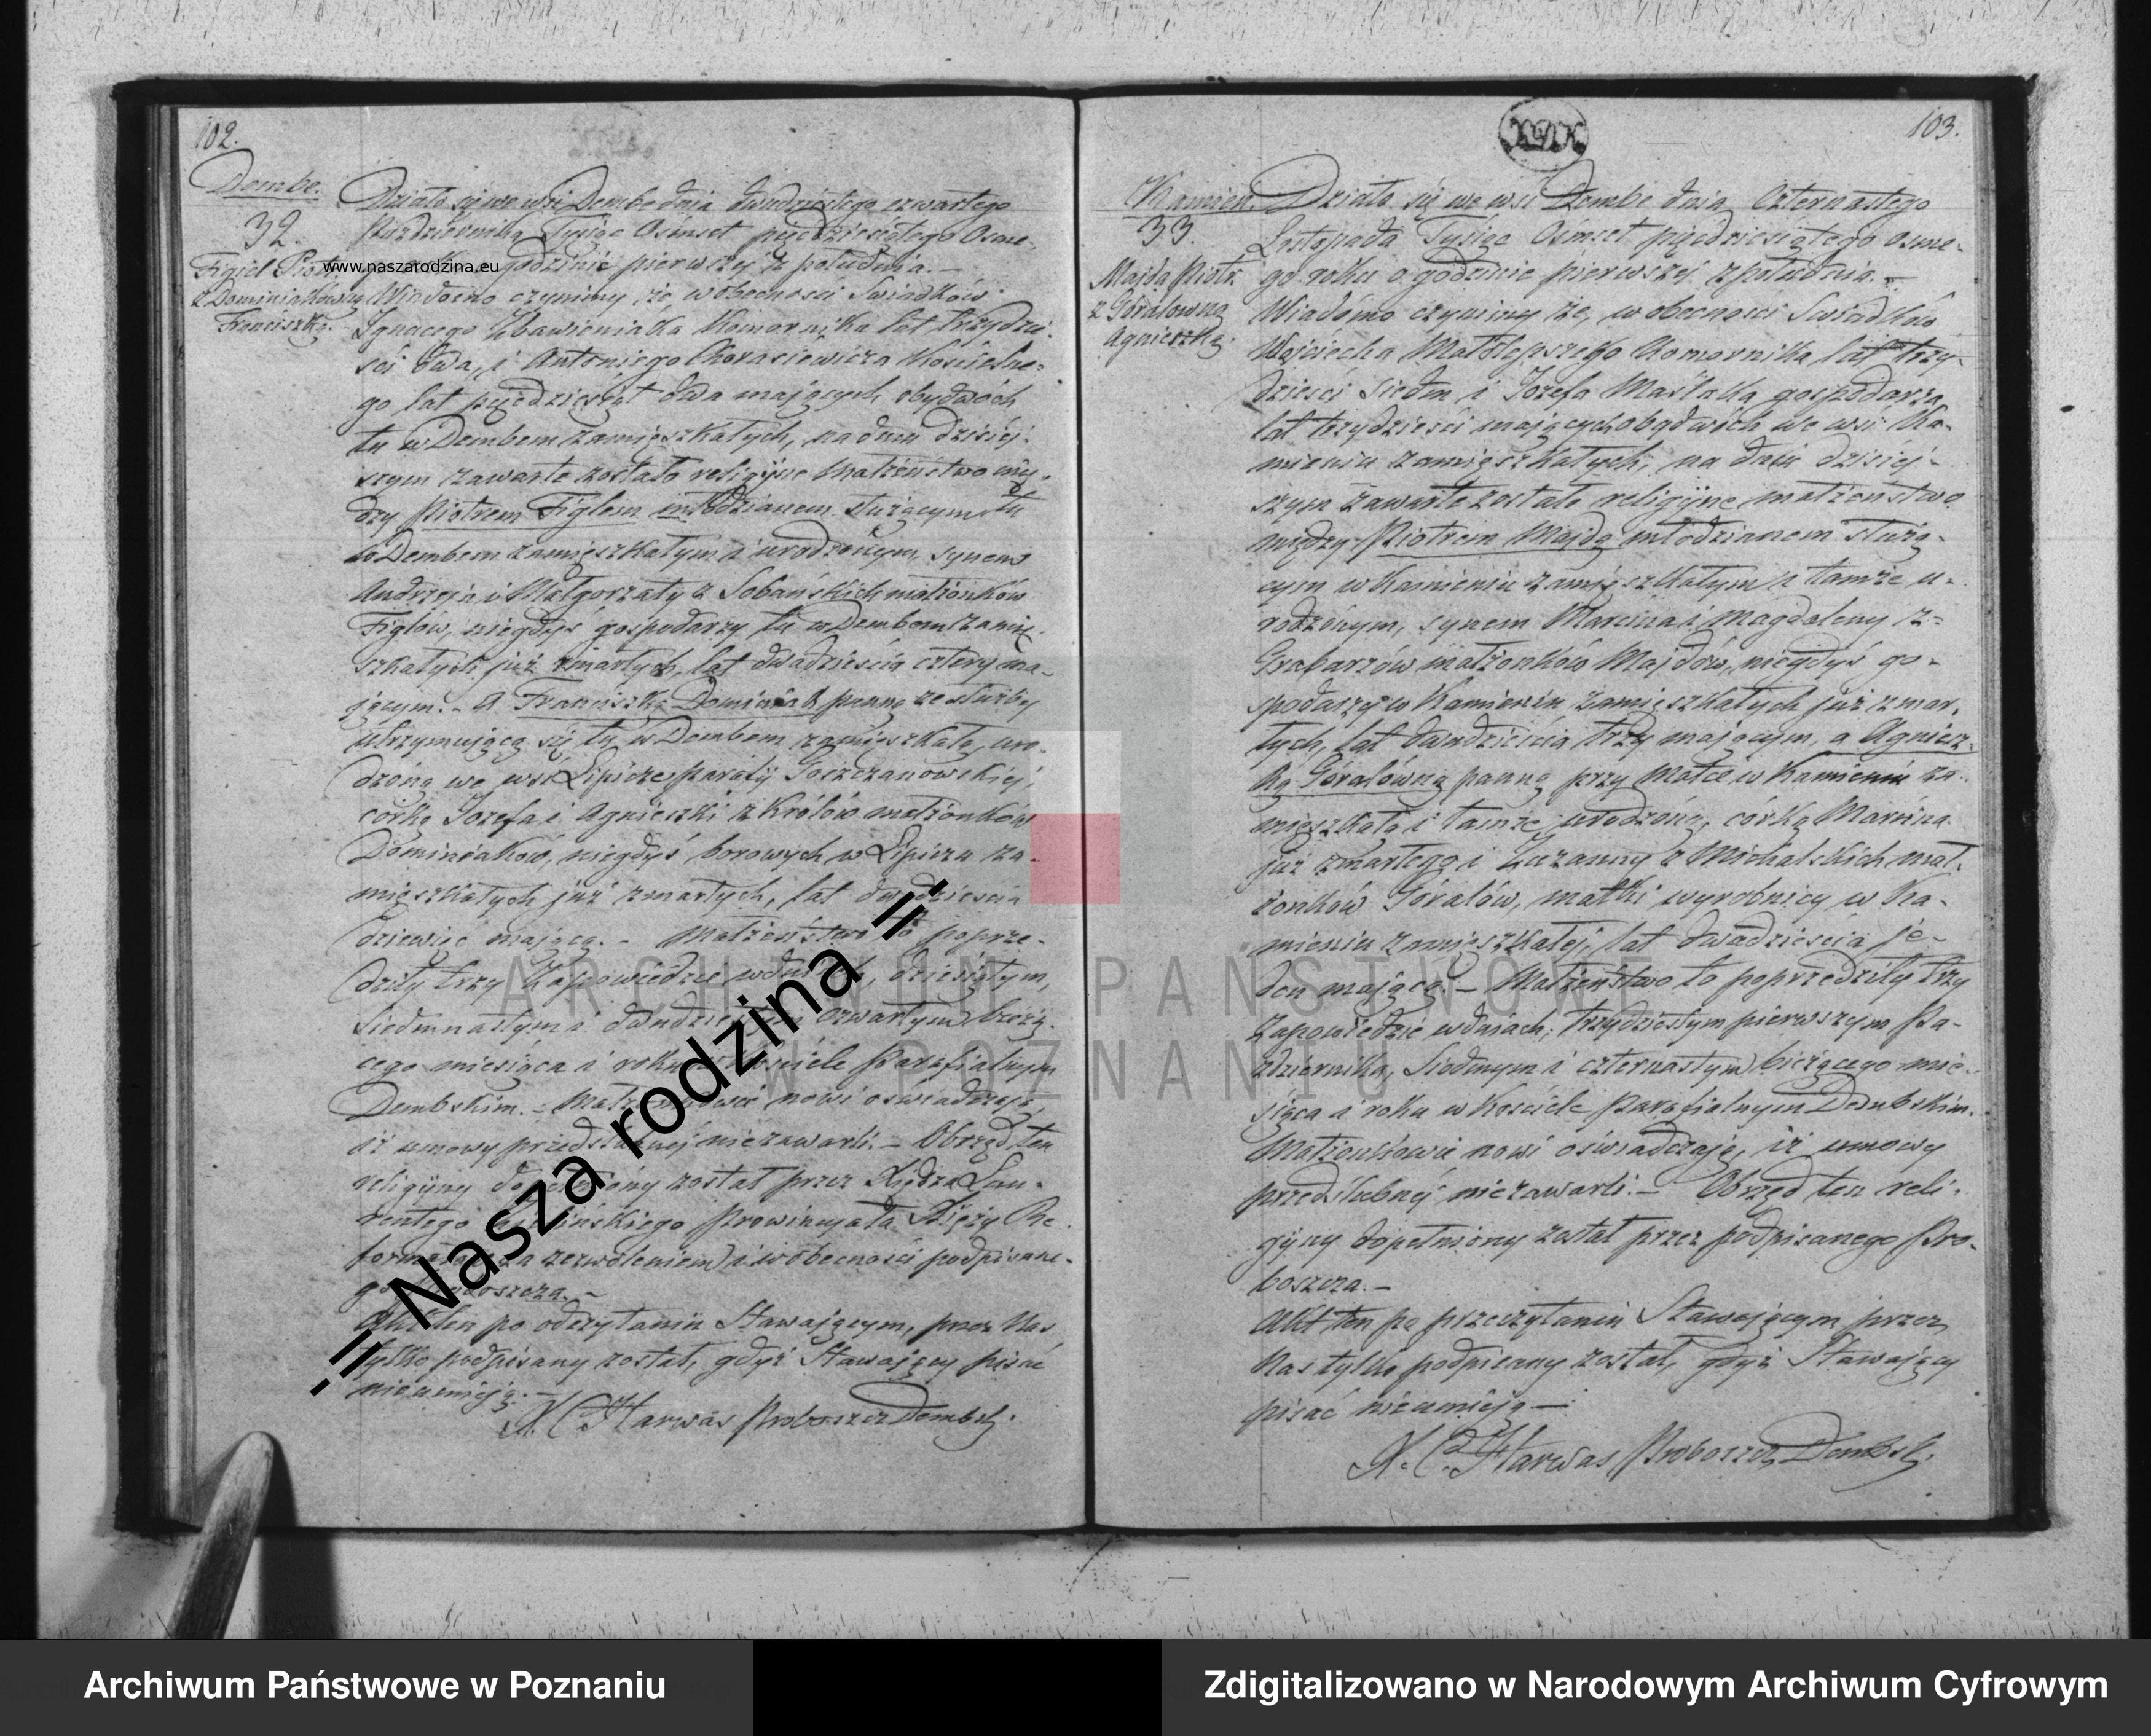 102.
Dembe.
32.
Figiel Piotr
z Dominiakówną
Franciszką.
Działo się we wsi Dembe dnia dwudziestego czwartego
Października Tysiąc Ośmset pięćdziesiątego Osme-
www.naszarodzina.eu godzinie pierwszej z południa. —
Wiadomo czynimy że w obecności Świadków
Ignacego Zbawieniaka Komornika lat trzydzie-
ści dwa, i Antoniego Chorasiewicza Kościelne-
go lat pięćdziesiąt dwa mających obydwóch
tu w Dembem zamięszkałych, na dniu dzisiej-
szym zawarte zostało religijne Małżeństwo mię-
dzy Piotrem Figlem młodzianem służącym tu
w Dembem zamięszkałym i urodzonym, synem
Andrzeja i Małgorzaty z Sobańskich małżonków
Figlów, niegdyś gospodarzy tu w Dembem zamię-
szkałych już zmarłych, lat dwadzieścia cztery ma-
jącym. - A Franciszką Dominiak panną ze służby
utrzymującą się tu w Dembem zamięszkałą, uro-
dzoną we wsi Lipicze Parafij Goszczanowskiej,
córką Józefa i Agnieszki z Królów małżonków
Dominiaków, niegdyś borowych w Lipiczu za-
mięszkałych już zmarłych, lat dwadzieścia
dziewięć mającą. - Małżeństwo to poprze-
dziły trzy Zapowiedzie w dniach, dziesiątym,
Siedmnastym i dwudziestym czwartym bieżą-
cego miesiąca i roku w Kościele Parafialnym
Dembskim. - Małżonkowie nowi oświadczają,
iż umowy przedślubnej niezawarli. - Obrząd ten
religijny dopełniony został przez Xiędza Lau-
rentego Prowincyała Xięży Re-
formatów za zezwoleniem i w obecności podpisane-
go Proboszcza. -
Akt ten po odczytaniu Stawającym, przez Nas
tylko podpisany został, gdyż Stawający pisać
nieumieją. —
X. C. Harwas Proboszcz Dembski.
-= Nasza rodzina =-
103.
Kamień.
33.
Majda Piotr
z Góralówną
Agnieszką.
Działo się we wsi Dembe dnia Czternastego
Listopada Tysiąc Ośmset pięćdziesiątego Osme-
go roku o godzinie pierwszej z południa. -
Wiadomo czynimy że, w obecności Świadków
Wojciecha Małolepszego Komornika lat trzy-
dzieści siedm i Józefa Maślaka gospodarza
lat trzydzieści mających obydwóch we wsi Ka-
mieniu zamięszkałych, na dniu dzisiej-
szym zawarte zostało religijne małżeństwo
między Piotrem Majdą młodzianem służą-
cym w Kamieniu zamięszkałym i tamże u-
rodzonym, synem Marcina i Magdaleny z-
Grabarzów małżonków Majdów, niegdyś go-
spodarzy w Kamieniu zamięszkałych już zmar-
łych, lat dwadzieścia trzy mającym, a Agniesz-
ką Góralówną panną przy Matce w Kamieniu za-
mięszkałą i tamże urodzoną, córką Marcina
już zmarłego i Zuzanny z Michalskich mał-
żonków Góralów, matki wyrobnicy w Ka-
mieniu zamięszkałej, lat dwadzieścia je-
den mającą. - Małżeństwo to poprzedziły trzy
Zapowiedzie w dniach; trzydziestym pierwszym Pa-
ździernika, Siódmym i czternastym bieżącego mie-
siąca i roku w Kościele Parafialnym Dembskim.
Małżonkowie nowi oświadczają, iż umowy
przedślubnej niezawarli. - Obrzęd ten reli-
gijny dopełniony został przez podpisanego Pro-
boszcza. -
Akt ten po przeczytaniu Stawającym przez
Nas tylko podpisany został, gdyż Stawający
pisać nieumieją —
X. C. Harwas Proboszcz Dembski.
ARCHIWUM PAŃSTWOWE
W POZNANIU
Archiwum Państwowe w Poznaniu
Zdigitalizowano w Narodowym Archiwum Cyfrowym